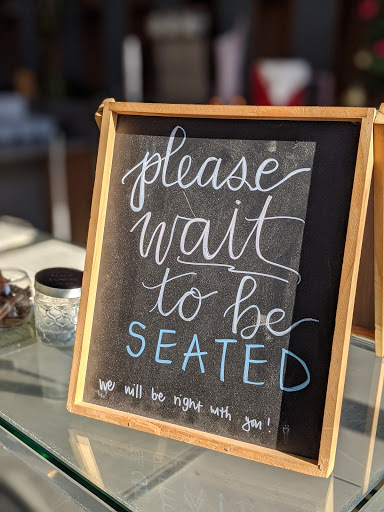 please
wait
to be
SEATED
we will be right with you!